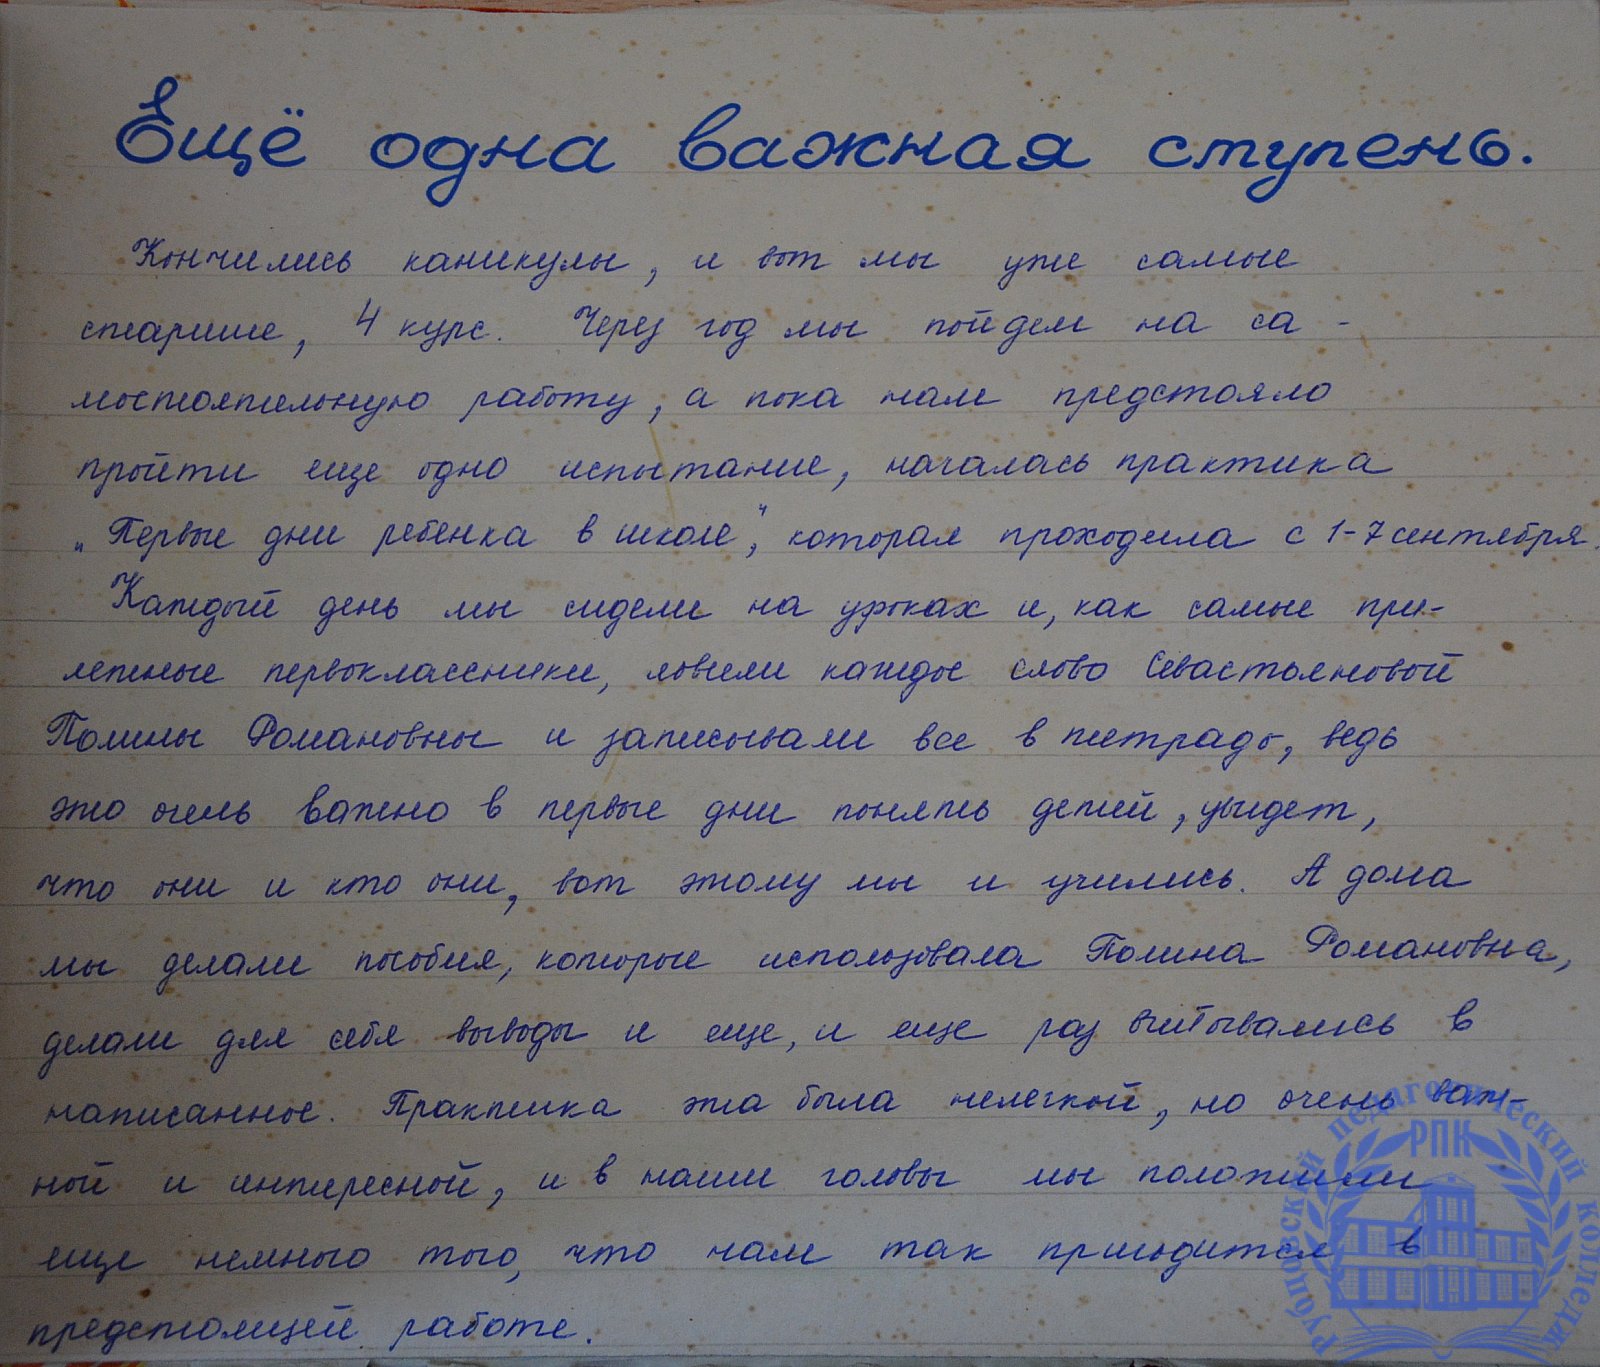 Ещё одна важная ступень.
Кончились каникулы, и вот мы уже самые
старшие, 4 курс. Через год мы пойдем на са-
мостоятельную работу, а пока нам предстояло
пройти еще одно испытание, началась практика
„Первые дни ребенка в школе", которая проходила с 1-7 сентября.
Каждый день мы сидели на уроках и, как самые при-
лежные первоклассники, ловили каждое слово Севастьяновой
Полины Романовны и записывали все в тетрадь, ведь
это очень важно в первые дни понять детей,
что они и кто они, вот этому мы и учились. А дома
мы делали пособия, которые использовала Полина Романовна,
делали для себя выводы и еще, и еще раз вчитывались в
написанное. Практика эта была нелегкой, но очень важ-
ной и интересной, и в наши головы мы положили
еще немного того, что нам так пригодится в
предстоящей работе.
Рубцовский педагогический колледж
РПК